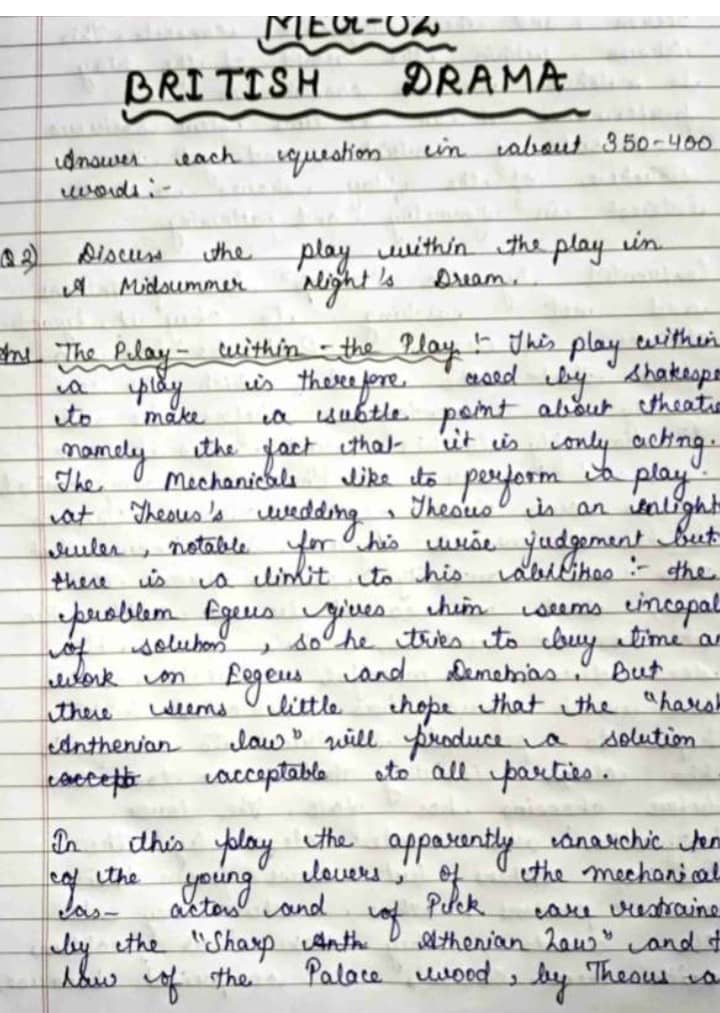 MEG-02
BRITISH DRAMA
Answer each question in about 350-400
words :-
Q 2) Discuss the play within the play in
A Midsummer Night's Dream.
Ans The Play - within - the Play :- This play within
a play is therefore used by Shakespe
to make a subtle point about theatre
namely the fact that it is only acting.
The Mechanicals like to perform a play
at Theseus's wedding, Theseus is an enlight
ruler, notable for his wise judgement but
there is a limit to his abilities :- the
problem Egeus gives him seems incapal
of solution, so he tries to buy time an
work on Eegeus and Demetrias. But
there seems little hope that the "harsh
Anthenian law" will produce a solution
accept acceptable to all parties.
In this play the apparently anarchic ten
of the young lovers, of the mechanical
as- actors and of Puck are restraine
by the "Sharp Anth Athenian Law" and t
law of the Palace wood, by Theseus a